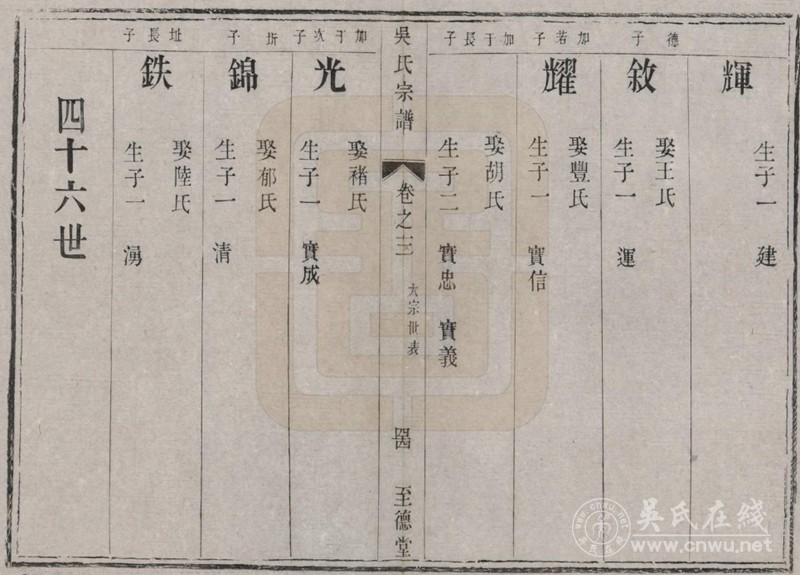 輝
生子一 建
德子
敘
娶王氏
生子一 運
加若子
耀
娶豐氏
生子一 實信
加于長子
娶胡氏
生子二 實忠 實義
吳氏宗譜
卷之十三
大宗世表
至德堂
加于次子
光
娶褚氏
生子一 實成
折子
錦
娶郁氏
生子一 清
址長子
鉄
娶陸氏
生子一 湧
四十六世
吳氏在线
www.cnwu.net